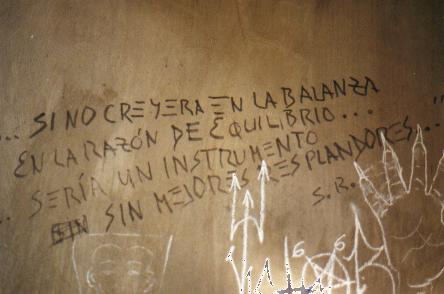 ... SI NO CREYERA EN LA BALANZA
EN LA RAZÓN DE EQUILIBRIO...
.. SERÍA UN INSTRUMENTO
SIN MEJORES RESPLANDORES... "
S.R.
6 6